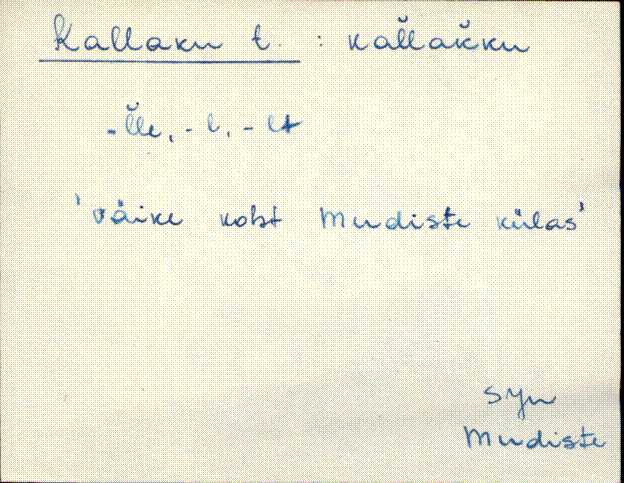 Kallaku t. : kal̆lak̆ku
-l̆le, -l, -lt
'väike koht Mudiste külas'
SJn
Mudiste